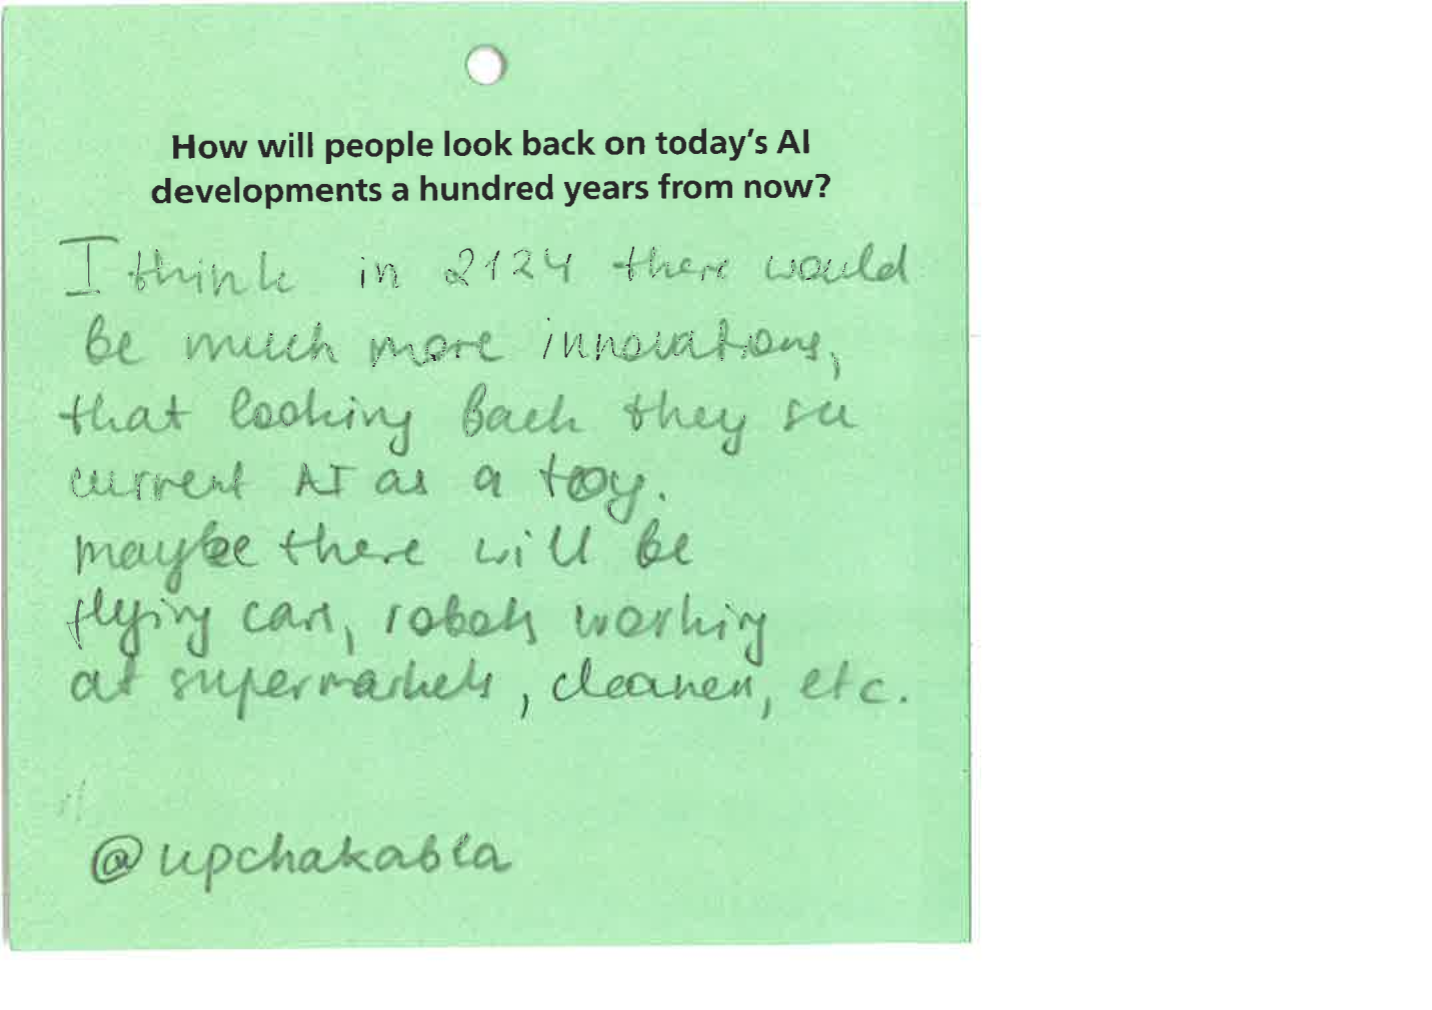 How will people look back on today's AI
developments a hundred years from now?
I think in 2124 there would
be much more innovations,
that looking back they see
current AI as a toy.
maybe there will be
flying cars, robots working
at supermarkets, cleaners, etc.
@upchakabla